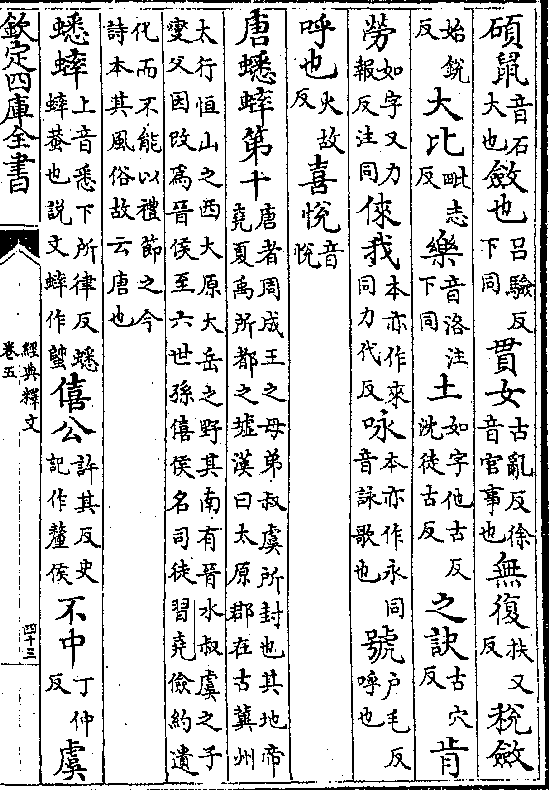 碩鼠音石大也斂也呂驗反下同貫女古亂反徐音官事也無復扶又反稅斂
始銳反大比毗志反樂音洛注下同土如字他古反沈徒古反之訣古穴反肯
勞如字又力報反注同倈我本亦作來同力代反咏本亦作永同音詠歌也號戶毛反呼也
呼也火故反喜悅音悅
唐蟋蟀第十唐者周成王之母弟叔虞所封也其地帝堯夏禹所都之墟漢曰太原郡在古冀州
太行恒山之西大原大岳之野其南有晉水叔虞之子燮父因改爲晉侯至六世孫僖侯名司徒習堯儉約遺
化而不能以禮節之今詩本其風俗故云唐也
蟋蟀上音悉下所律反蟋蟀蛬也說文蟀作䗐僖公許其反史記作釐侯不中丁仲反虞
欽定四庫全書
經典釋文
卷五
四十三